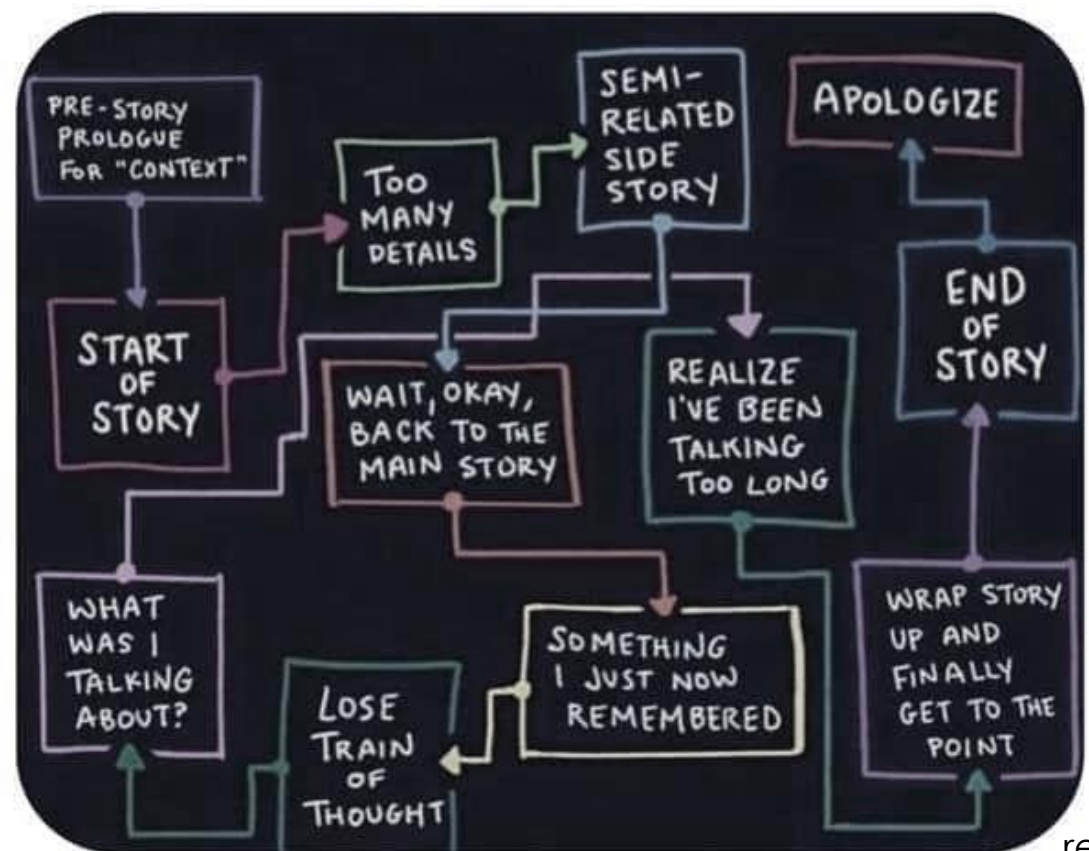 PRE-STORY
PROLOGUE
FOR "CONTEXT"
START
OF
STORY
TOO
MANY
DETAILS
SEMI-
RELATED
SIDE
STORY
WAIT, OKAY,
BACK TO THE
MAIN STORY
SOMETHING
I JUST NOW
REMEMBERED
LOSE
TRAIN
OF
THOUGHT
WHAT
WAS I
TALKING
ABOUT?
REALIZE
I'VE BEEN
TALKING
TOO LONG
WRAP STORY
UP AND
FINALLY
GET TO THE
POINT
END
OF
STORY
APOLOGIZE
re